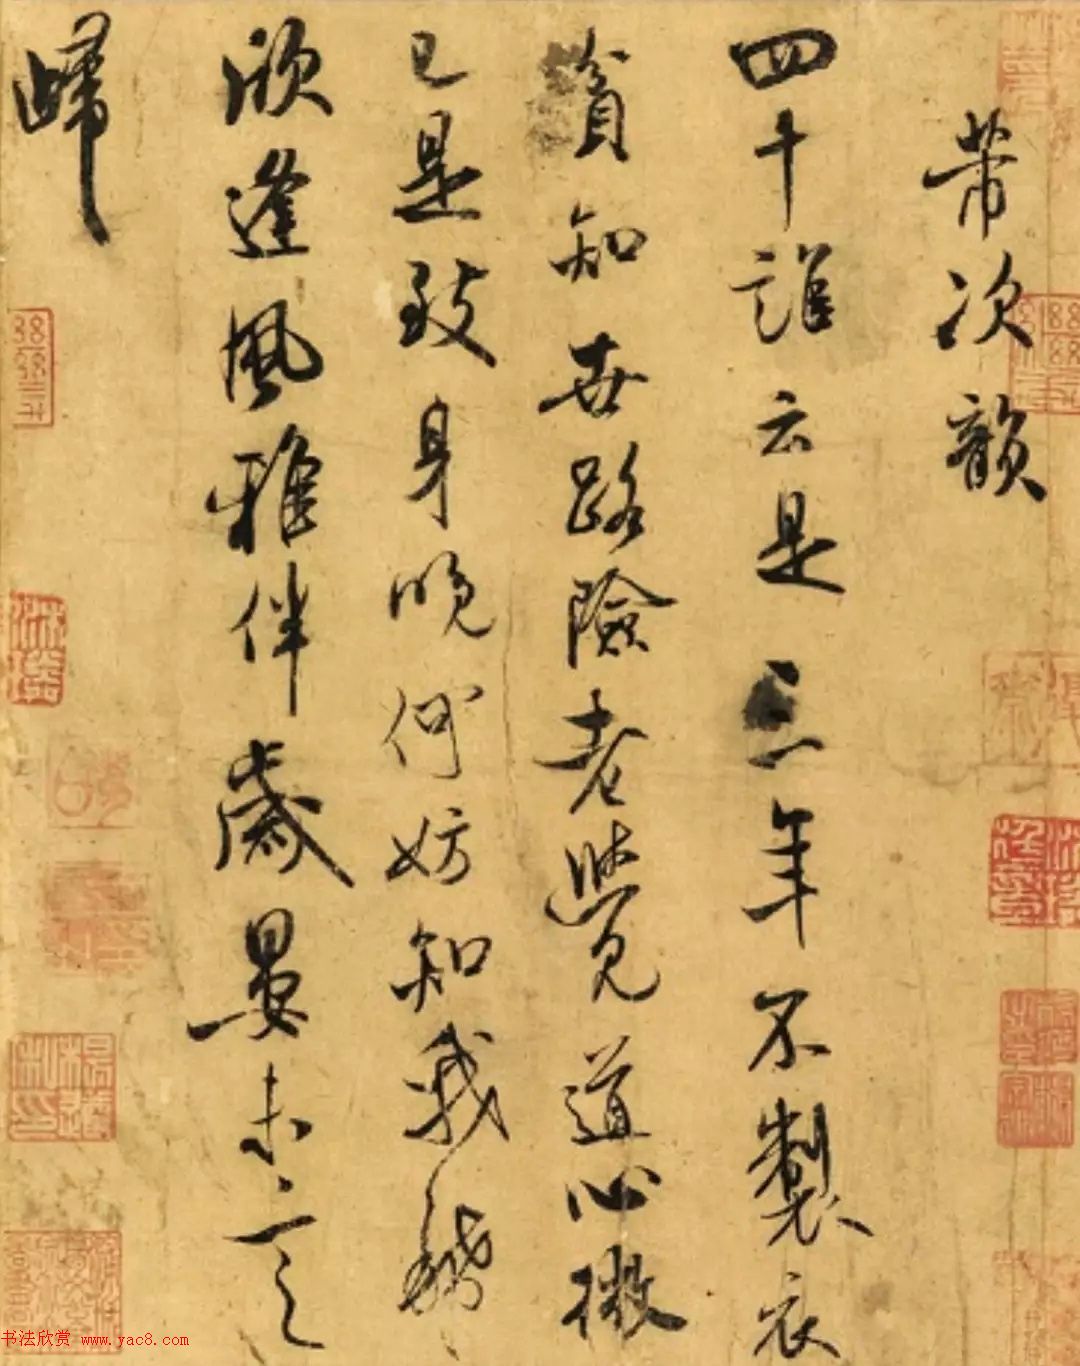 芾次韻
四十誰云是三年不製衣
貧知世路險老覺道心微
已是致身晚何妨知我稀
欣逢風雅伴歲晏未言
歸
书法欣赏 www.yac8.com